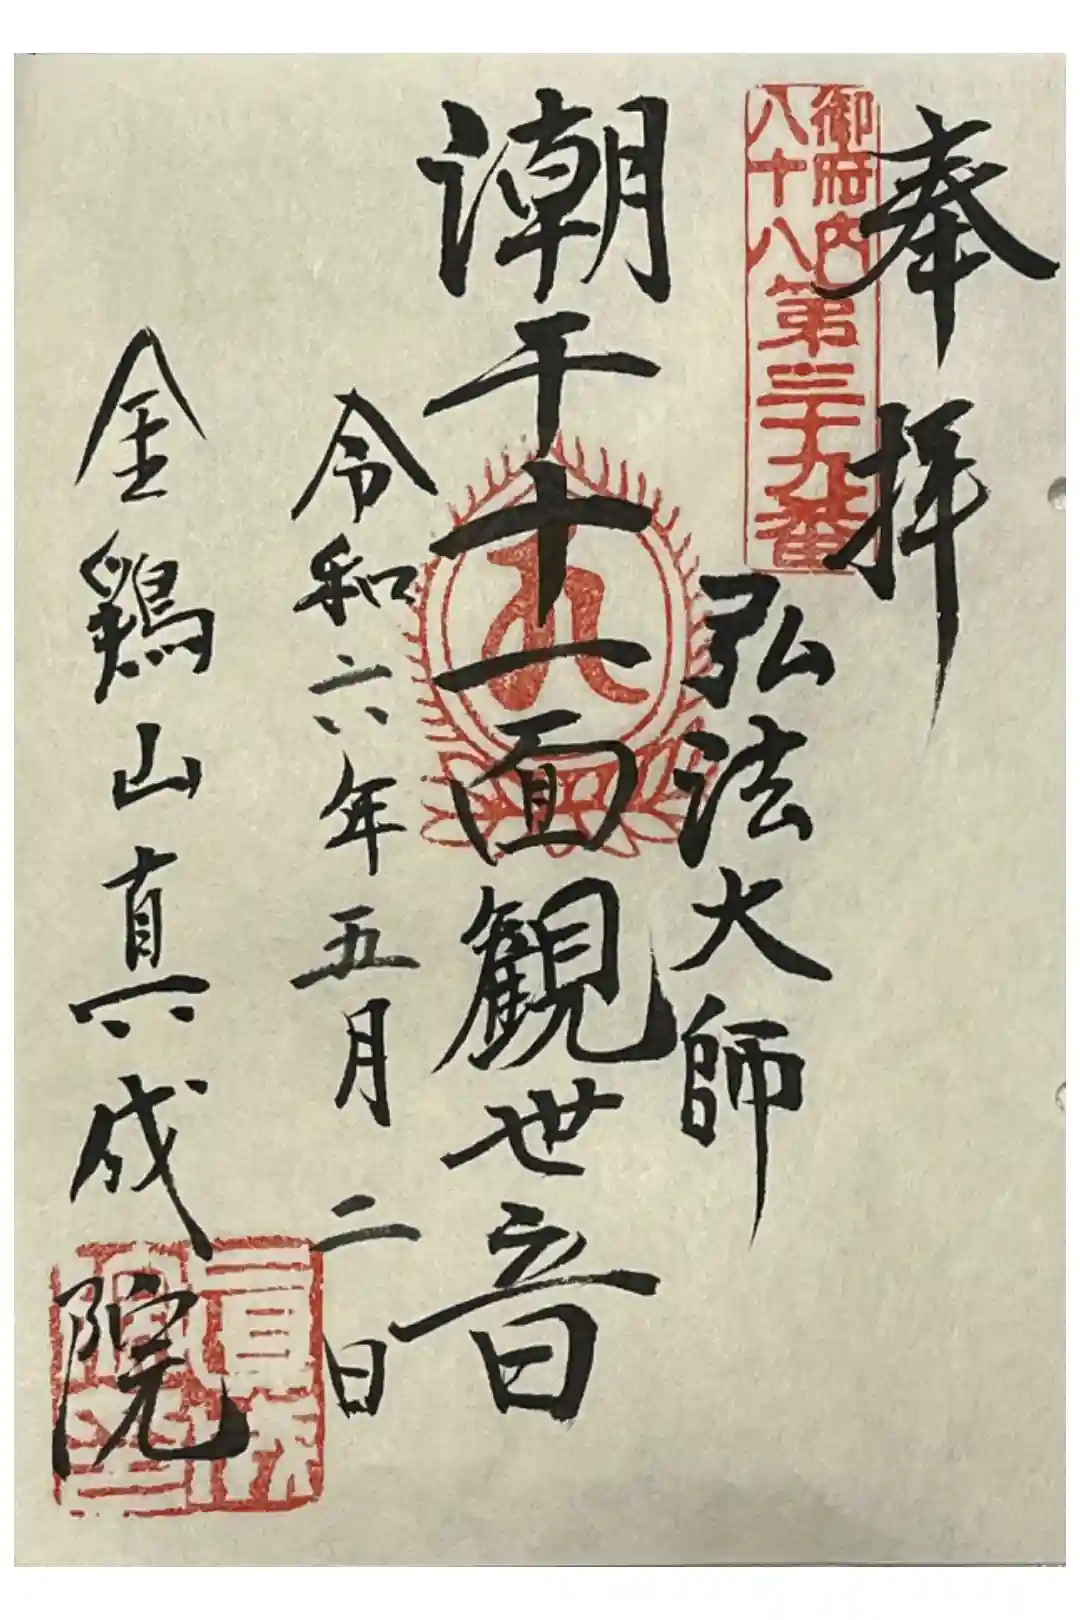 奉拝
御府内
八十八
第三十九番
弘法大師
潮干十一面観世音
令和六年五月二日
金鶏山真成院